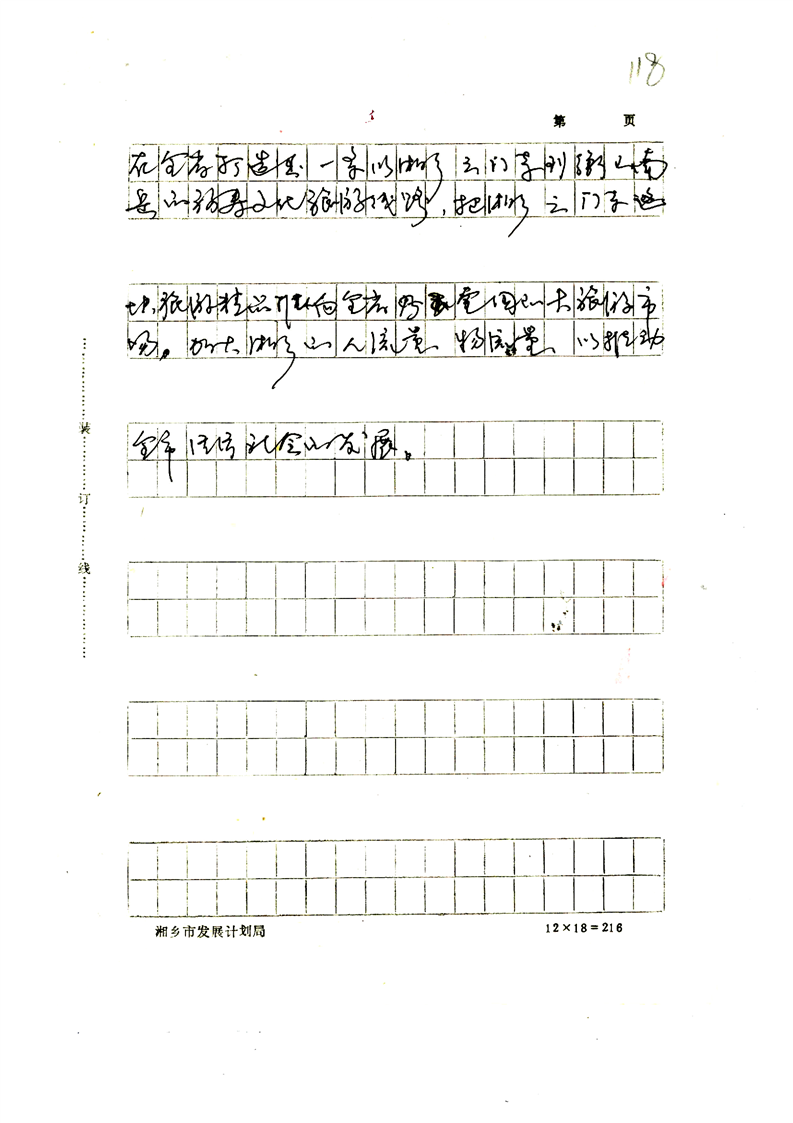 118
第 页
在全省打造出一条以湘乡云门寺到衡山南
岳的福寿文化旅游线路，把湘乡云门寺这
块旅游精品推向全省乃至全国的大旅游市
场。加大湘乡的人流量、物流量、以推动
全市经济社会的发展。
装订线
湘乡市发展计划局
12×18=216